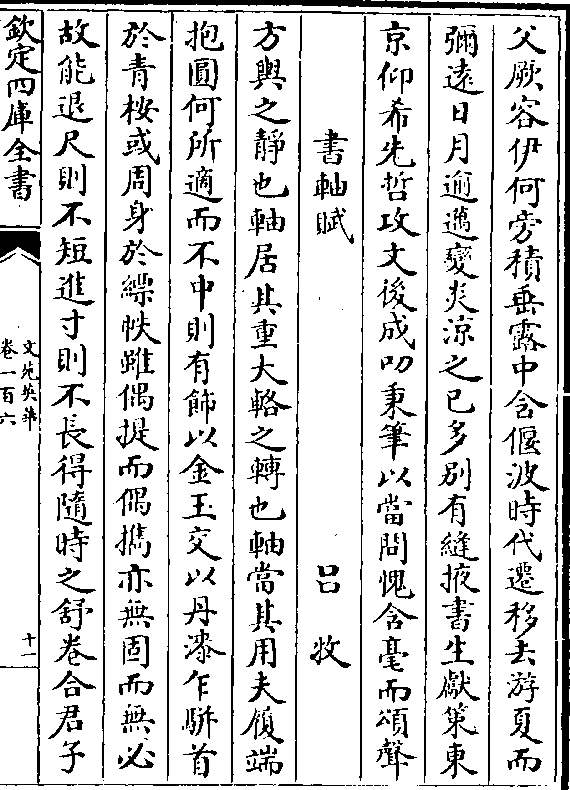 父厥容伊何旁積垂露中含偃波時代遷移去游夏而
彌遠日月逾邁變炎涼之已多別有縫掖書生獻策東
京仰希先哲攻文後成叨秉筆以當問愧含毫而頌聲
書軸賦 呂牧
方輿之靜也軸居其重大輅之轉也軸當其用夫履端
抱圓何所適而不中則有飾以金玉交以丹漆乍駢首
於青桉或周身於縹帙雖偶提而偶攜亦無固而無必
故能退尺則不短進寸則不長得隨時之舒卷合君子
欽定四庫全書
文苑英華
卷一百六
十一